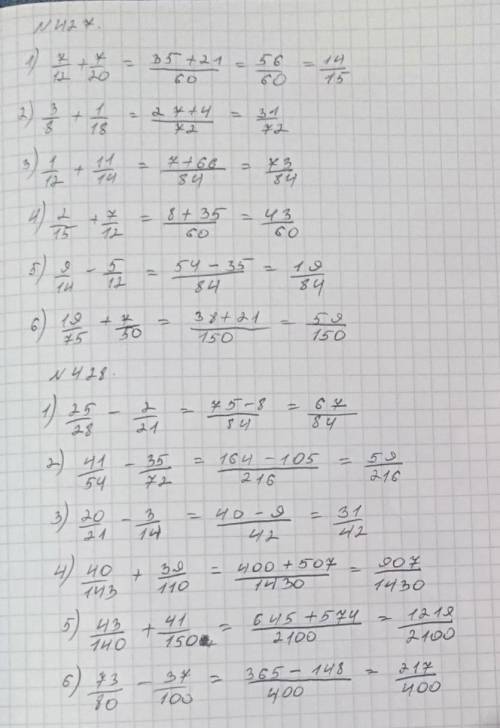 №427.
1) 7/12 + 7/20 = 35+21/60 = 56/60 = 14/15
2) 3/8 + 1/18 = 27+4/72 = 31/72
3) 1/12 + 11/14 = 7+66/84 = 73/84
4) 2/15 + 7/12 = 8+35/60 = 43/60
5) 9/14 - 5/12 = 54-35/84 = 19/84
6) 19/75 + 7/50 = 38+21/150 = 59/150
№428.
1) 25/28 - 2/21 = 75-8/84 = 67/84
2) 41/54 - 35/72 = 164-105/216 = 59/216
3) 20/21 - 3/14 = 40-9/42 = 31/42
4) 40/143 + 39/110 = 400+507/1430 = 907/1430
5) 43/140 + 41/150 = 645+574/2100 = 1219/2100
6) 73/80 - 37/100 = 365-148/400 = 217/400